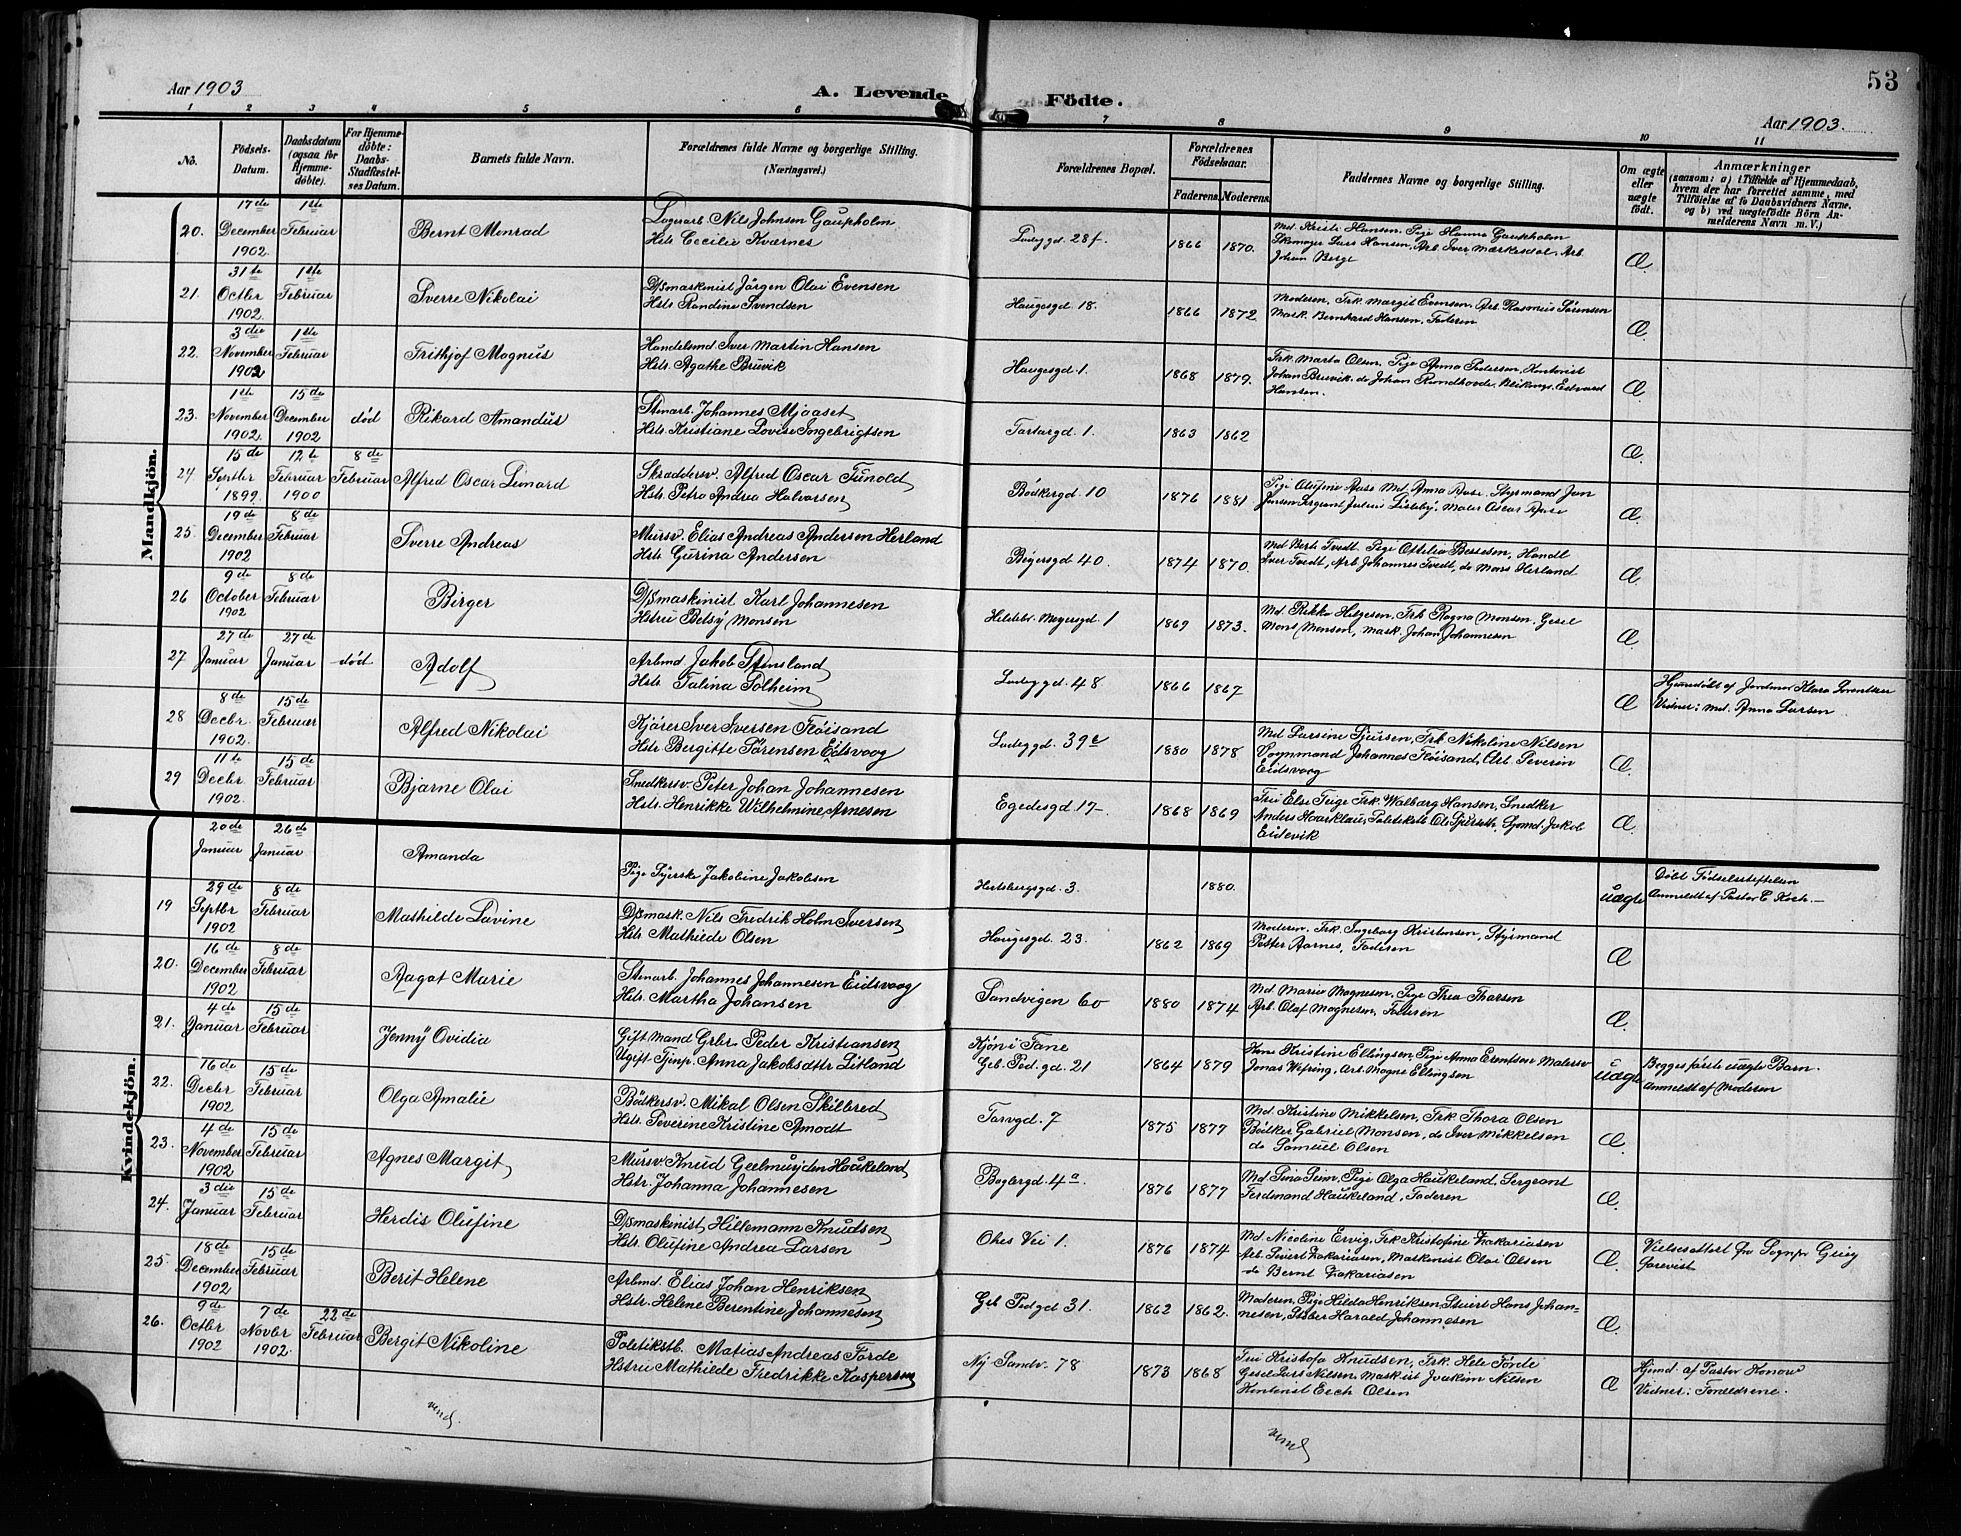 53
Aar 1903
A. Levende Födte.
Aar 1903.
1 2 3 4 5 6 7 8 9 10 11
No.
Födsels-
Datum.
Daabsdatum
(ogsaa for
Hjemme-
döbte).
For Hjemme-
döbte:
Daabs-
Stadfæstel-
ses Datum.
Barnets fulde Navn.
Forældrenes fulde Navne og borgerlige Stilling.
(Næringsvei.)
Forældrenes Bopæl.
Forældrenes
Födselsaar.
Faderens. Moderens.
Faddernes Navne og borgerlige Stilling.
Om ægte
eller
uægte
födt.
Anmærkninger
(saasom: a) i Tilfælde af Hjemmedaab,
hvem der har forrettet samme, med
Tilföielse af to Daabsvidners Navne,
og b) ved uægtefödte Börn An-
melderens Navn m. V.)
Mandkjön.
20. 17de December 1902 1ste Februar Bernt Monrad
Lagerarb. Nils Johnsen Gaupholm
Hstr Cecilie Kværnes
Ladeggd. 28f. 1866 1870.
Md. Kristi Hansen, Pige Hanna Gaupholm
Skomager Lars Hansen, Arb. Iver Mærkesdal, Arb.
Johan Berge
Æ
21. 31te Octbr 1902 1ste Februar Sverre Nikolai
D/Smaskinist Jörgen Olai Evensen
Hstr Randine Svendsen
Haugesgd. 18. 1866 1872
Moderen, Frk. Margit Evensen, Arb. Rasmus Sörensen
Mask. Bernhard Hansen, Faderen
Æ
22. 3die November 1902 1ste Februar Frithjof Magnus
Handelsmd Iver Martin Hansen
Hstr. Agathe Bruvik
Haugesgd 1. 1868 1879.
Frk. Marta Olsen, Pige Anna Pedersen, Kontorist
Johan Bruvik, do Johan Rundhovde, Edvard
Hansen.
Æ
23. 1ste November 1902. 15de December 1902 död Rikard Amandus
Stenarb. Johannes Mjaaset
Hstr. Kristiane Lovise Ingebrigtsen
Tartargd. 1. 1863 1862
Æ.
24 15de Septbr 1899. 12te Februar 1900 8de Februar Alfred Oscar Leonard
Skræddersv. Alfred Oscar Tunold
Hstr. Petra Andrea Halvorsen
Bödkergd. 10 1876 1881
Pige Olufine Aase Md. Anna Aase, Styrmand Jan
Jansen Sergeant Julius Lisleby, Maler Oscar Aase
Æ
25. 19de December 1902 8de Februar Sverre Andreas
Mursv. Elias Andreas Andersen Herland
Hstr Gurina Andersen
Bøgersgd 40. 1874 1870.
Md Berte Tvedt. Pige Ottilia Bessesen, Handl
Iver Tvedt, Arb Johannes Tvedt, do Mons Herland
Æ
26 9de October 1902 8de Februar Birger
D/Smaskinist Karl Johannesen
Hstru Betsy Monsen
Hildebr. Meyersgd. 1 1869 1873.
Md. Rikka Helgesen, Frk Ragna Monsen. Gesel
Mons Monsen, Mask. Johan Johannesen
Æ
27 27de Januar 27de Januar död Adolf
Arbmd. Jakob Stensland
Hstr Talina Solheim
Ladeggd. 48 1866 1867
Æ
Hjemdöbt af Jordmor Klara Lorentsen
Vidner: Md. Anna Larsen
28 8de Decbr. 1902. 15de Februar Alfred Nikolai
Kjörer Iver Iversen Flöisand
Hstr Bergitte Sörensen Eidsvaag
Ladeggd. 39e 1880 1878
Md Larsine Sjursen, Frk Nikoline Nilsen
Vognmand Johannes Flöisand, Arb. Severin
Eidsvaag
Æ.
29 11te Decbr 1902. 15de Februar Bjarne Olai
Snedkersv. Peter Johan Johannesen
Hstr. Henrikke Wilhelmine Arnesen
Egedesgd 17- 1868 1869
Fru Else Teige Frk. Walborg Hansen, Snedker
Anders Haarklau, Politikstb Ole Sjurseth, Sjömd. Jakob
Eidevik
Æ.
Kvindekjön.
20de Januar 26de Januar Amanda
Pige Syerske Jakobine Jakobsen
Hertsbergsgd. 3 1880.
uægte
Döbt Födselsstiftelsen
Anmeldt af Pastor E Koch.—
19 29de Septbr 1902 8de Februar Mathilde Lavine
D/Smask. Nils Fredrik Holm Iversen
Hstr. Mathilde Olsen
Haugesgd. 23. 1862 1869
Moderen, Frk. Ingeborg Kristensen, Styrmand
Petter Aarnes, Faderen
Æ
20. 16de December 1902 8de Februar Aagot Marie
Stenarb. Johannes Johannesen Eidsvaag
Hstr. Martha Johansen
Sandvigen 60 1880 1874
Md Marie Magnesen, Pige Thea Thorsen
Arb. Olaf Magnesen, Faderen
Æ.
21. 4de Januar 15de Februar Jenny Ovidia
Gift Mand Grbr. Peder Kristiansen
Ugift Tjnp. Anna Jakobsdttr Litland
Kjön i Fane
Geb. Pod. gd. 21 1864 1879
Kone Kristine Ellingsen, Pige Anna Erentsen Malersv
Jonas Wefring, Arb. Magne Ellingsen
uægte
Begges förste uægte Barn.
Anmeldt af Moderen
22. 16de Decbr 1902 15de Februar Olga Amalie
Bödkersv. Mikal Olsen Skilbred
Hstr. Severine Kristine Amodt
Torvgd. 7 1875 1877
Md. Kristine Mikkelsen, Frk. Thora Olsen
Bödker Gabriel Monsen, do Iver Mikkelsen
do Samuel Olsen
Æ
23. 4de November 1902 15de Februar Agnes Margit
Mursv Knud Geelmuyden Haukeland
Hstr. Johanna Johannesen
Baglergd. 4a 1876 1877
Md Sina Seim, Pige Olga Haukeland, Sergeant
Ferdinand Haukeland, Faderen
Æ.
24. 3die Januar 15de Februar Herdis Olufine
D/Smaskinist Hillemann Knudsen
Hstr. Olufine Andrea Larsen
Ohes Vei 1. 1876 1874
Md Nicoline Ervig, Frk Kristofine Zakariasen
Arb. Sivert Zakariasen, Maskinist Olai Olsen
do Bernt Zakariasen
Æ.
Vielsesattest fra Sognpr
forevist
25. 18de December 1902 15de Februar Berit Helene
Arbmd. Elias Johan Henriksen
Hstr. Helene Berentine Johannesen
Geb Podgd 31. 1862 1862.
Moderen, Pige Hilda Henriksen, Stuert Hans Johan-
nesen, Stöber Harald Johannesen
Æ.
26. 9de Octbr 1902 7de Novbr 1902. 22de Februar Bergit Nikoline
Politikstb. Matias Andreas Förde
Hstru Mathilde Fredrikke Kaspersen
Ny Sandv. 78 1873 1868
Fru Kristofa Knudsen, Frk. Hele Förde
Gesel Lars Nilsen, Maskist Joakim Nilsen
Kontorist Erch Olsen
Æ
Hjemd. af Pastor Honow
Vidner: Forældrene.
vend.
vend